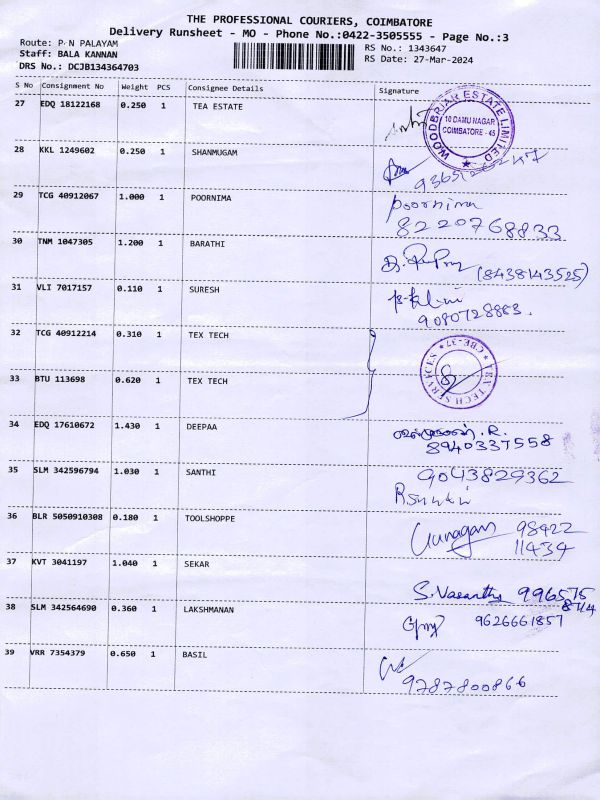 THE PROFESSIONAL COURIERS, COIMBATORE
Delivery Runsheet - MO - Phone No.:0422-3505555 - Page No.:3
Route: P N PALAYAM
Staff: BALA KANNAN
DRS No.: DCJB134364703
RS No.: 1343647
RS Date: 27-Mar-2024
S No Consignment No Weight PCS Consignee Details Signature
27 EDQ 18122168 0.250 1 TEA ESTATE
WOODBRIAR ESTATE LIMITED
10 DAMU NAGAR
COIMBATORE - 45
28 KKL 1249602 0.250 1 SHANMUGAM
29 TCG 40912067 1.000 1 POORNIMA Poornima
8220768833
30 TNM 1047305 1.200 1 BARATHI
(8438143525)
31 VLI 7017157 0.110 1 SURESH
9080728883.
32 TCG 40912214 0.310 1 TEX TECH
TEX TECH SERVICES
CBE-37
33 BTU 113698 0.620 1 TEX TECH
34 EDQ 17610672 1.430 1 DEEPAA
8940337558
35 SLM 342596794 1.030 1 SANTHI 9043829362
36 BLR 5050910308 0.180 1 TOOLSHOPPE 98422
11434
37 KVT 3041197 1.040 1 SEKAR
S. Vasantha 996575
8714
38 SLM 342564690 0.360 1 LAKSHMANAN
9626661857
39 VRR 7354379 0.650 1 BASIL
9787800866